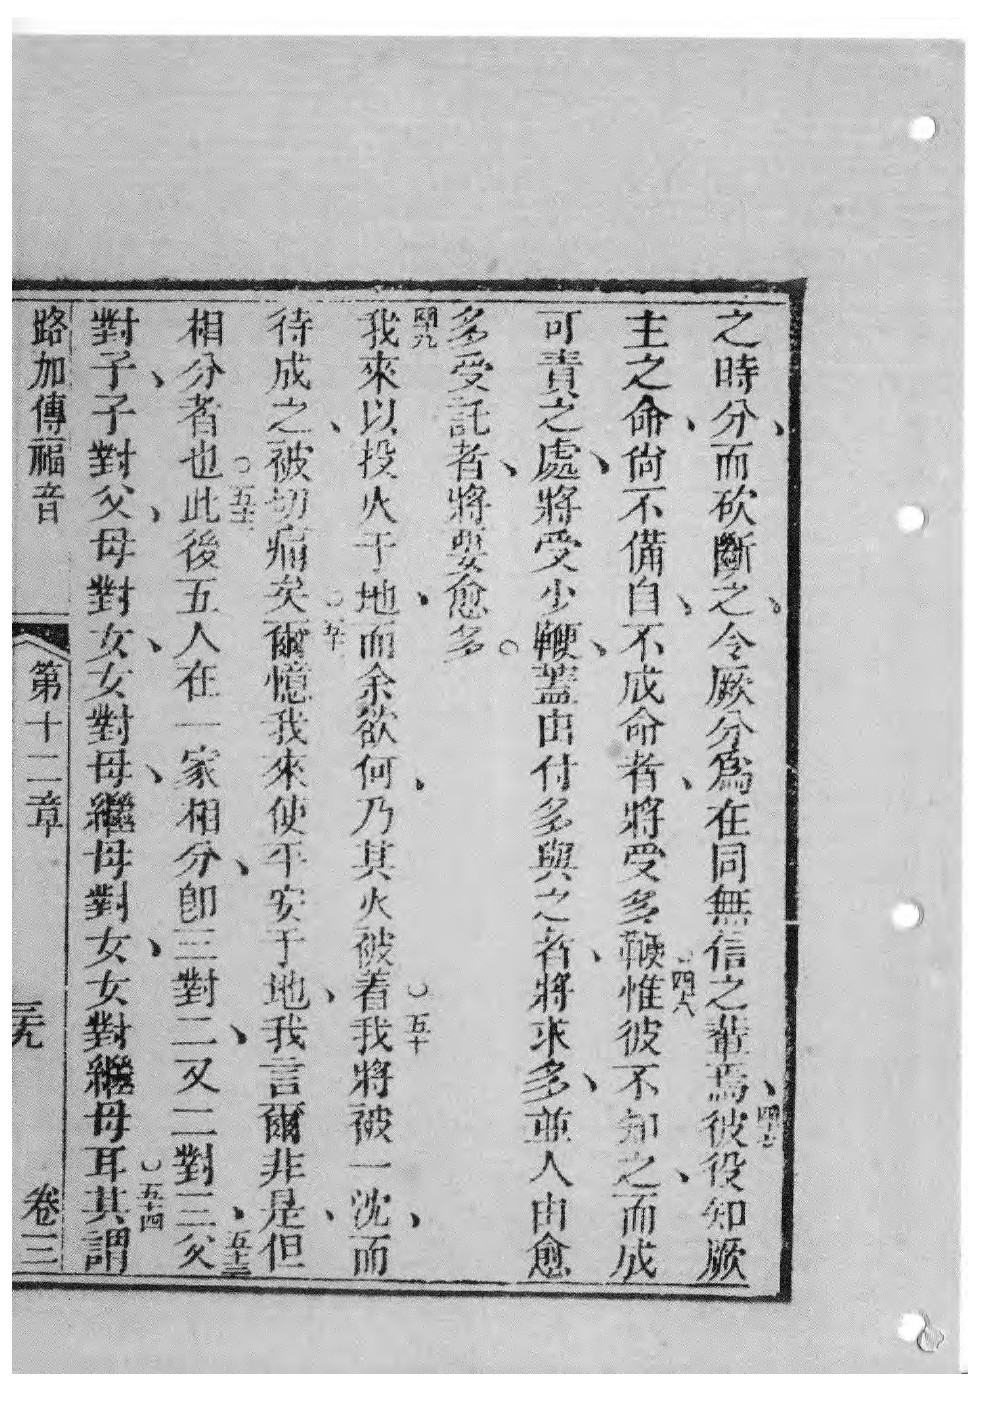 之時分、而砍斷之、令厥分爲在同無信之輩焉、四十七彼役知厥
主之命、尙不備自、不成命者、將受多鞭。四八惟彼不知之、而成
可責之處、將受少鞭、蓋由付多與之者、將求多、並人由愈
多受託者、將要愈多。
四十九我來以投火于地、而余欲何、乃其火被着。五十我將被一沈、而
待成之、被切痛矣。五十一爾憶我來使平安于地、我言爾非是、但
相分者也。五十二此後五人在一家相分、卽三對二、又二對三、五十三父
對子、子對父、母對女、女對母、繼母對女、女對繼母耳。五十四其謂
路加傳福音 第十二章 三九 卷三